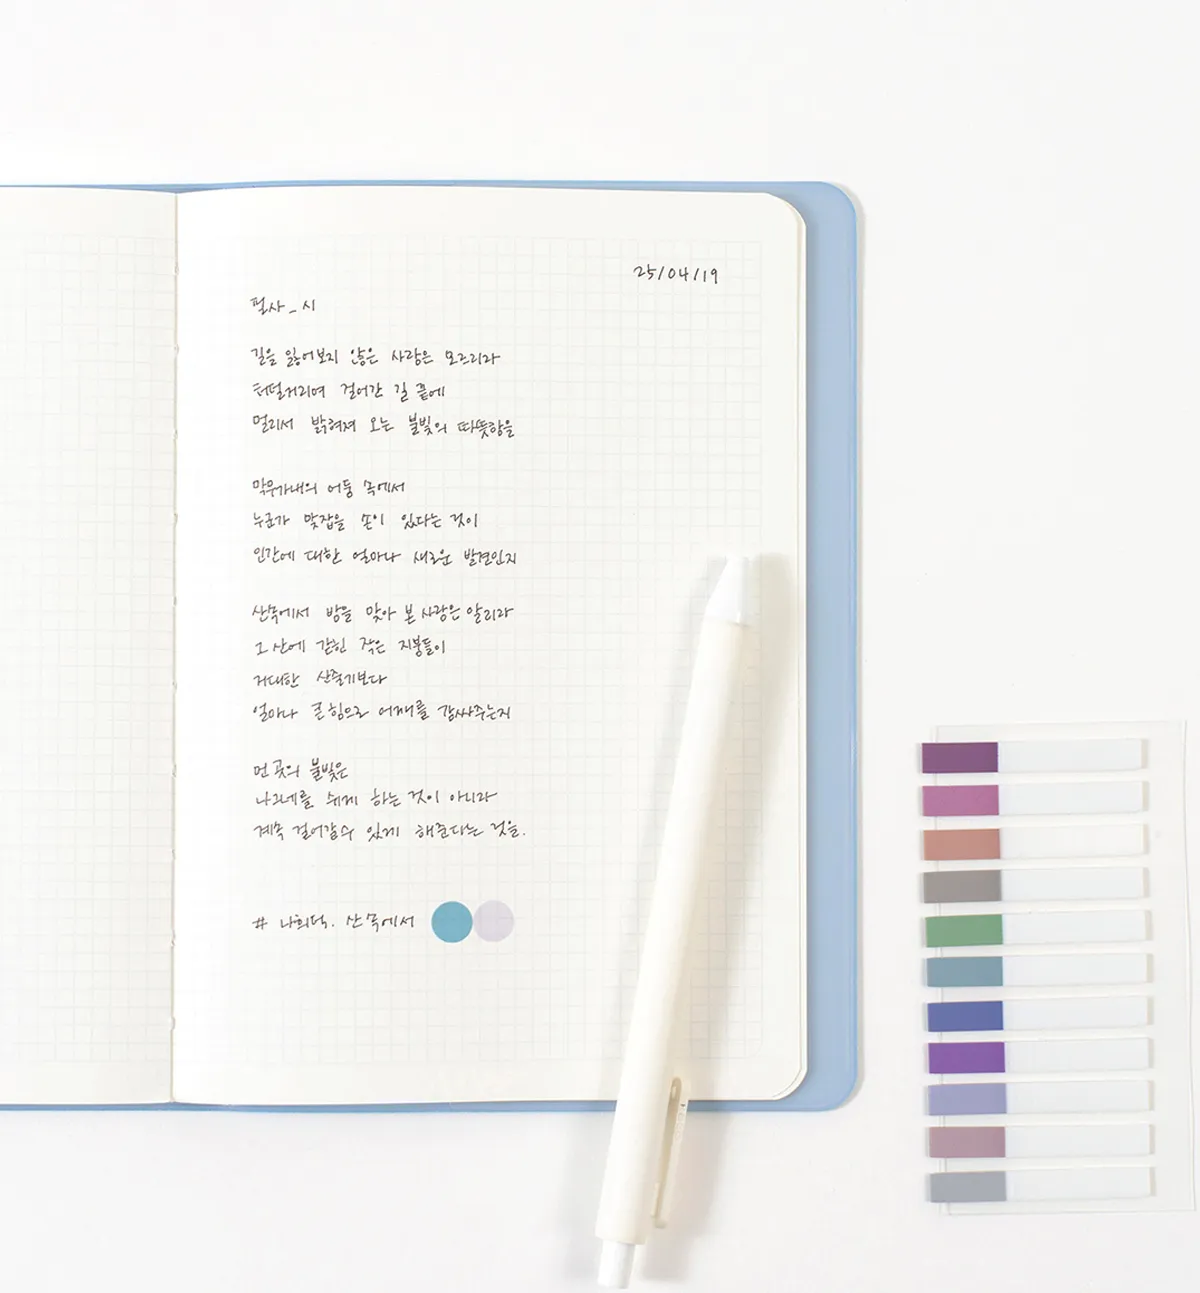 25/04/19
필사_시
길을 잃어보지 않은 사람은 모르리라
터덜거리며 걸어간 길 끝에
멀리서 밝혀져 오는 불빛의 따뜻함을
막무가내의 어둠 속에서
누군가 맞잡을 손이 있다는 것이
인간에 대한 얼마나 새로운 발견인지
산속에서 밤을 맞아 본 사람은 알리라
그 산에 갇힌 작은 지붕들이
거대한 산줄기보다
얼마나 큰 힘으로 어깨를 감싸주는지
먼 곳의 불빛은
나그네를 쉬게 하는 것이 아니라
계속 걸어갈수 있게 해준다는 것을.
# 나희덕. 산속에서